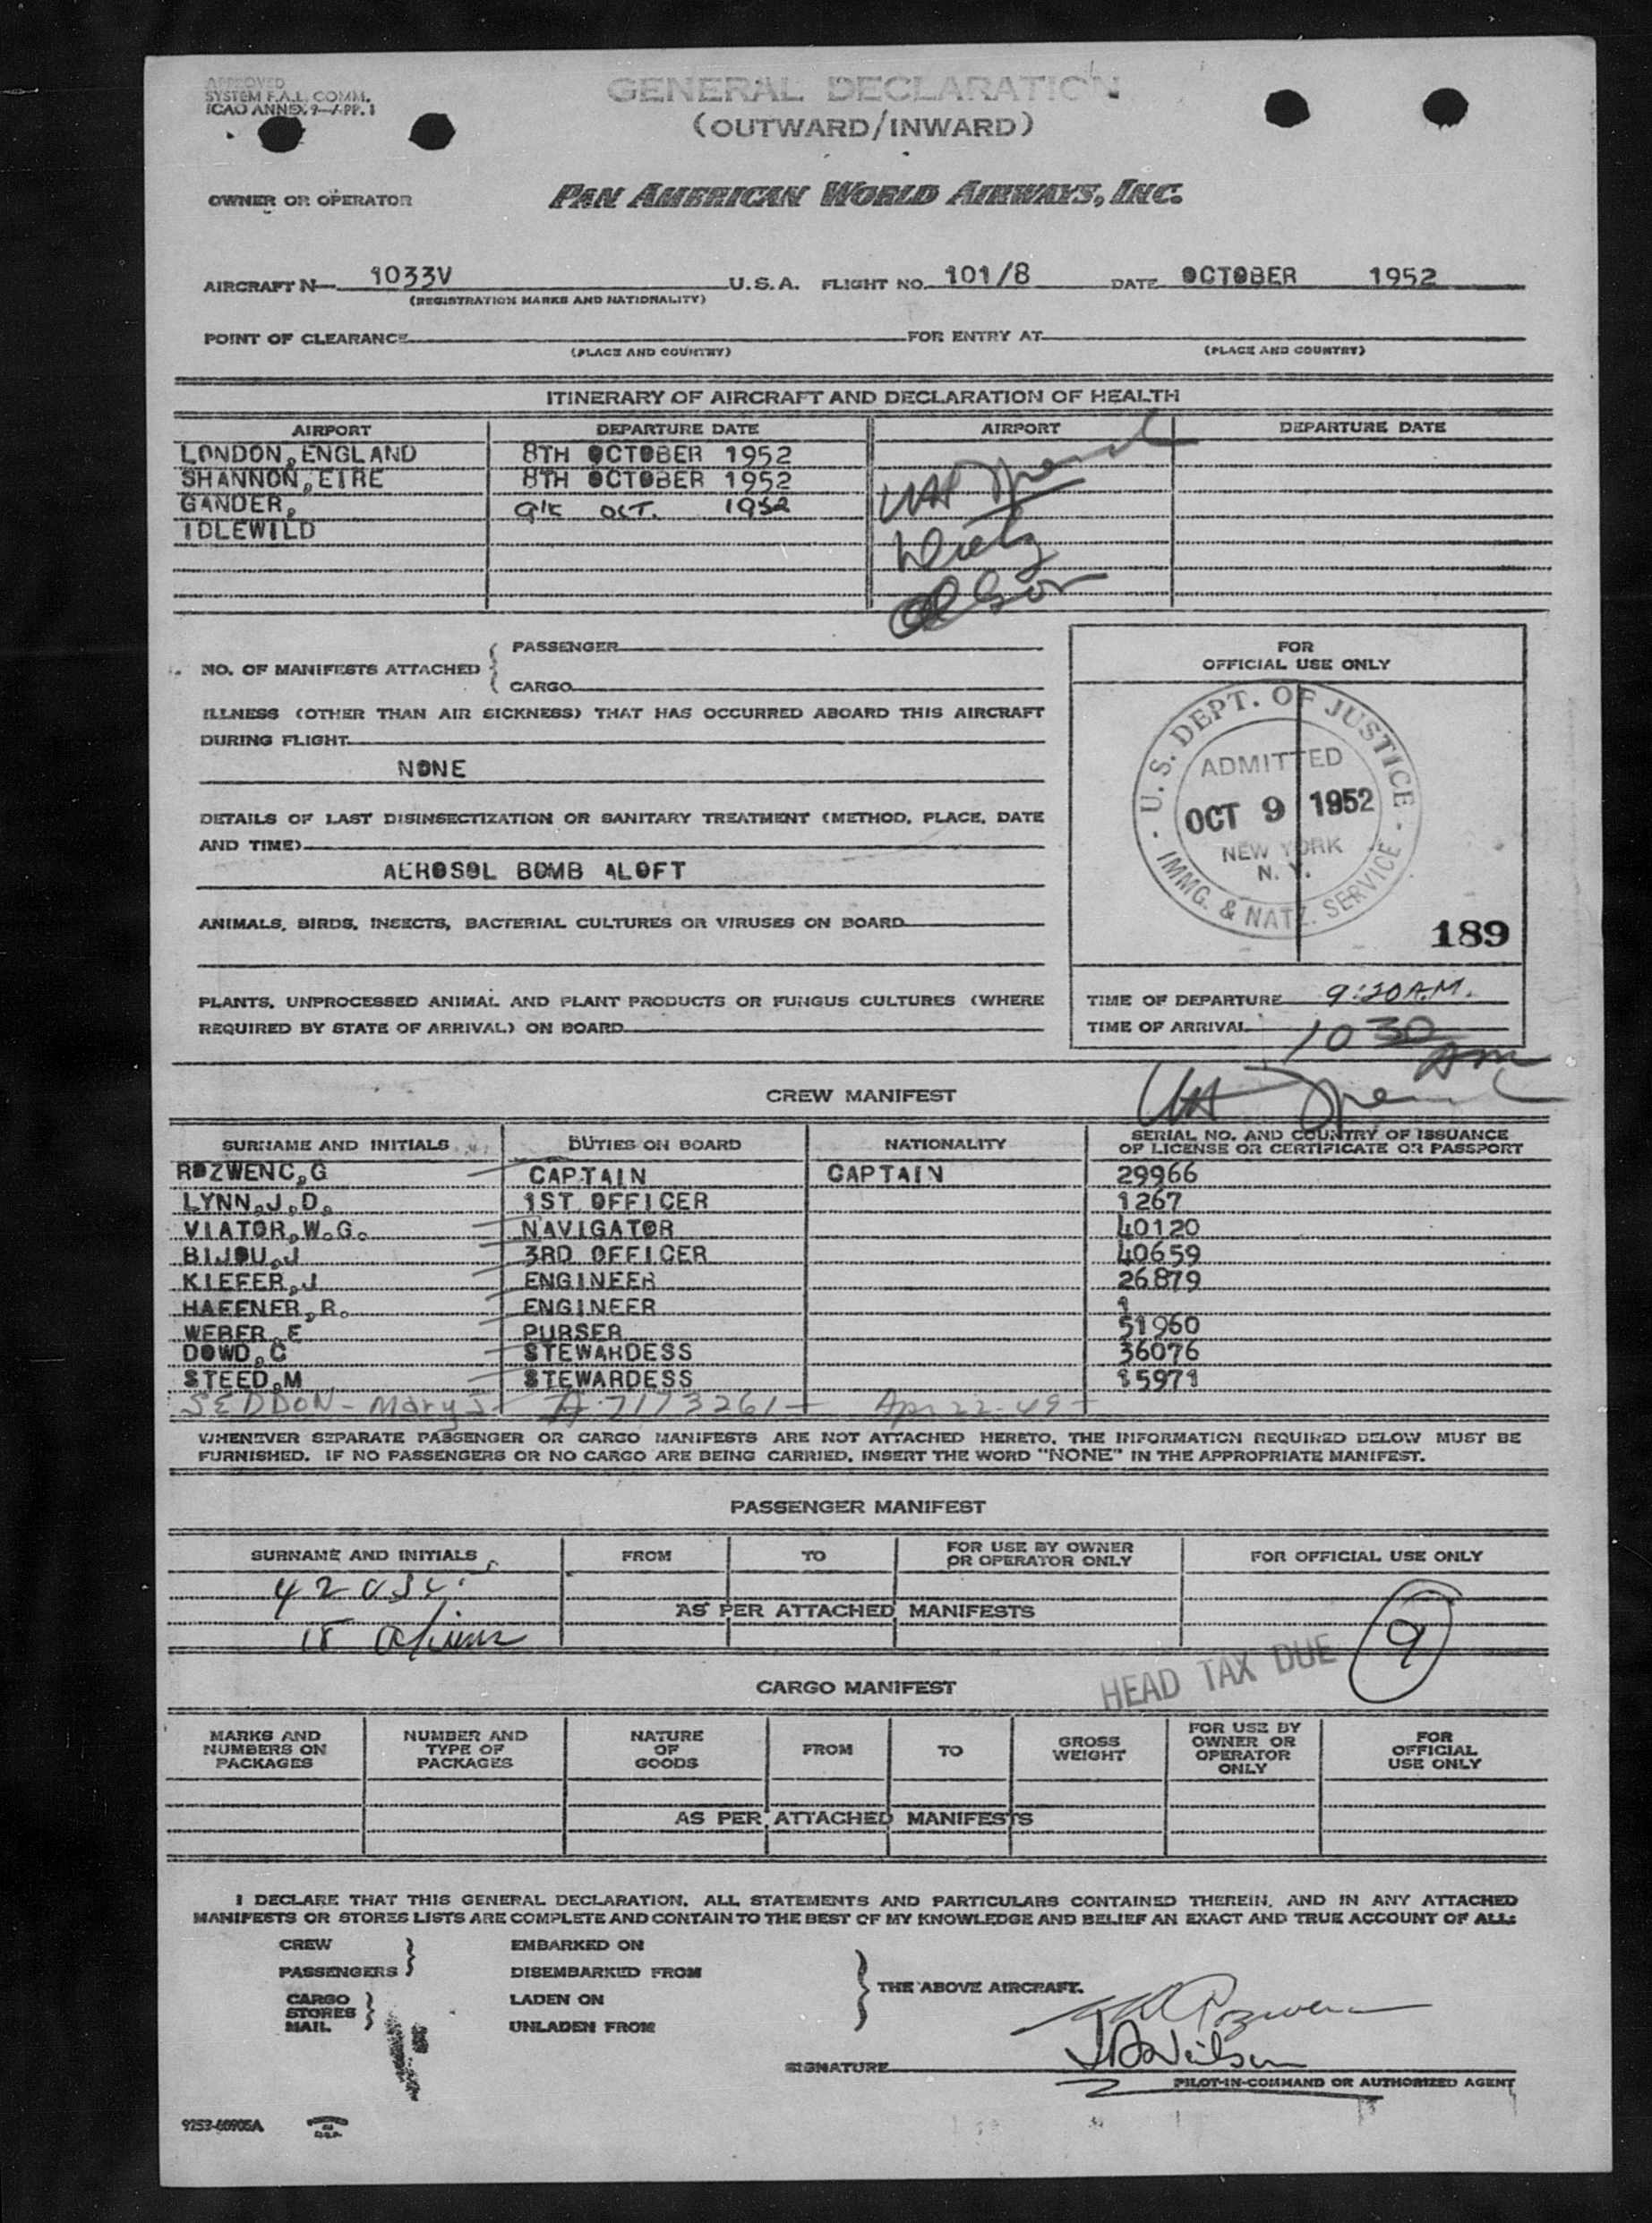 APPROVED
SYSTEM F.A.L. COMM.
ICAO ANNEX 9-APP. 1
GENERAL DECLARATION
(OUTWARD/INWARD)
OWNER OR OPERATOR PAN AMERICAN WORLD AIRWAYS, INC.
AIRCRAFT N- 1033V U.S.A. FLIGHT NO. 101/8 DATE OCTOBER 1952
(REGISTRATION MARKS AND NATIONALITY)
POINT OF CLEARANCE FOR ENTRY AT
(PLACE AND COUNTRY) (PLACE AND COUNTRY)
ITINERARY OF AIRCRAFT AND DECLARATION OF HEALTH
AIRPORT DEPARTURE DATE AIRPORT DEPARTURE DATE
LONDON, ENGLAND 8TH OCTOBER 1952
SHANNON, EIRE 8TH OCTOBER 1952
GANDER, 9th OCT. 1952
IDLEWILD
NO. OF MANIFESTS ATTACHED { PASSENGER
CARGO
ILLNESS (OTHER THAN AIR SICKNESS) THAT HAS OCCURRED ABOARD THIS AIRCRAFT
DURING FLIGHT
NONE
DETAILS OF LAST DISINSECTIZATION OR SANITARY TREATMENT (METHOD, PLACE, DATE
AND TIME)
AEROSOL BOMB ALOFT
ANIMALS, BIRDS, INSECTS, BACTERIAL CULTURES OR VIRUSES ON BOARD
PLANTS, UNPROCESSED ANIMAL AND PLANT PRODUCTS OR FUNGUS CULTURES (WHERE
REQUIRED BY STATE OF ARRIVAL) ON BOARD
FOR
OFFICIAL USE ONLY
U.S. DEPT. OF JUSTICE
ADMITTED
OCT 9 1952
NEW YORK
N. Y.
IMMG. & NATZ. SERVICE
189
TIME OF DEPARTURE 9:20 A.M.
TIME OF ARRIVAL 10 30 AM
CREW MANIFEST
SURNAME AND INITIALS DUTIES ON BOARD NATIONALITY SERIAL NO. AND COUNTRY OF ISSUANCE
OF LICENSE OR CERTIFICATE OR PASSPORT
ROZWENC, G CAPTAIN CAPTAIN 29966
LYNN, J.D. 1ST OFFICER 1267
VIATOR, W.G. NAVIGATOR 40120
BIJOU, J 3RD OFFICER 40659
KIEFER, J ENGINEER 26879
HAFFNER, R. ENGINEER
WEBER, E PURSER 51960
DOWD, C STEWARDESS 36076
STEED, M STEWARDESS 15971
SEDDON - Mary J. A-7173261 Apr 22-49
WHENEVER SEPARATE PASSENGER OR CARGO MANIFESTS ARE NOT ATTACHED HERETO, THE INFORMATION REQUIRED BELOW MUST BE
FURNISHED. IF NO PASSENGERS OR NO CARGO ARE BEING CARRIED, INSERT THE WORD "NONE" IN THE APPROPRIATE MANIFEST.
PASSENGER MANIFEST
SURNAME AND INITIALS FROM TO FOR USE BY OWNER
OR OPERATOR ONLY FOR OFFICIAL USE ONLY
42 USC
AS PER ATTACHED MANIFESTS
aliens
9
HEAD TAX DUE
CARGO MANIFEST
MARKS AND
NUMBERS ON
PACKAGES
NUMBER AND
TYPE OF
PACKAGES
NATURE
OF
GOODS
FROM
TO
GROSS
WEIGHT
FOR USE BY
OWNER OR
OPERATOR
ONLY
FOR
OFFICIAL
USE ONLY
AS PER ATTACHED MANIFESTS
I DECLARE THAT THIS GENERAL DECLARATION, ALL STATEMENTS AND PARTICULARS CONTAINED THEREIN, AND IN ANY ATTACHED
MANIFESTS OR STORES LISTS ARE COMPLETE AND CONTAIN TO THE BEST OF MY KNOWLEDGE AND BELIEF AN EXACT AND TRUE ACCOUNT OF ALL:
CREW EMBARKED ON
PASSENGERS } DISEMBARKED FROM
CARGO LADEN ON } THE ABOVE AIRCRAFT.
STORES
MAIL } UNLADEN FROM
SIGNATURE
PILOT-IN-COMMAND OR AUTHORIZED AGENT
9253-60905A